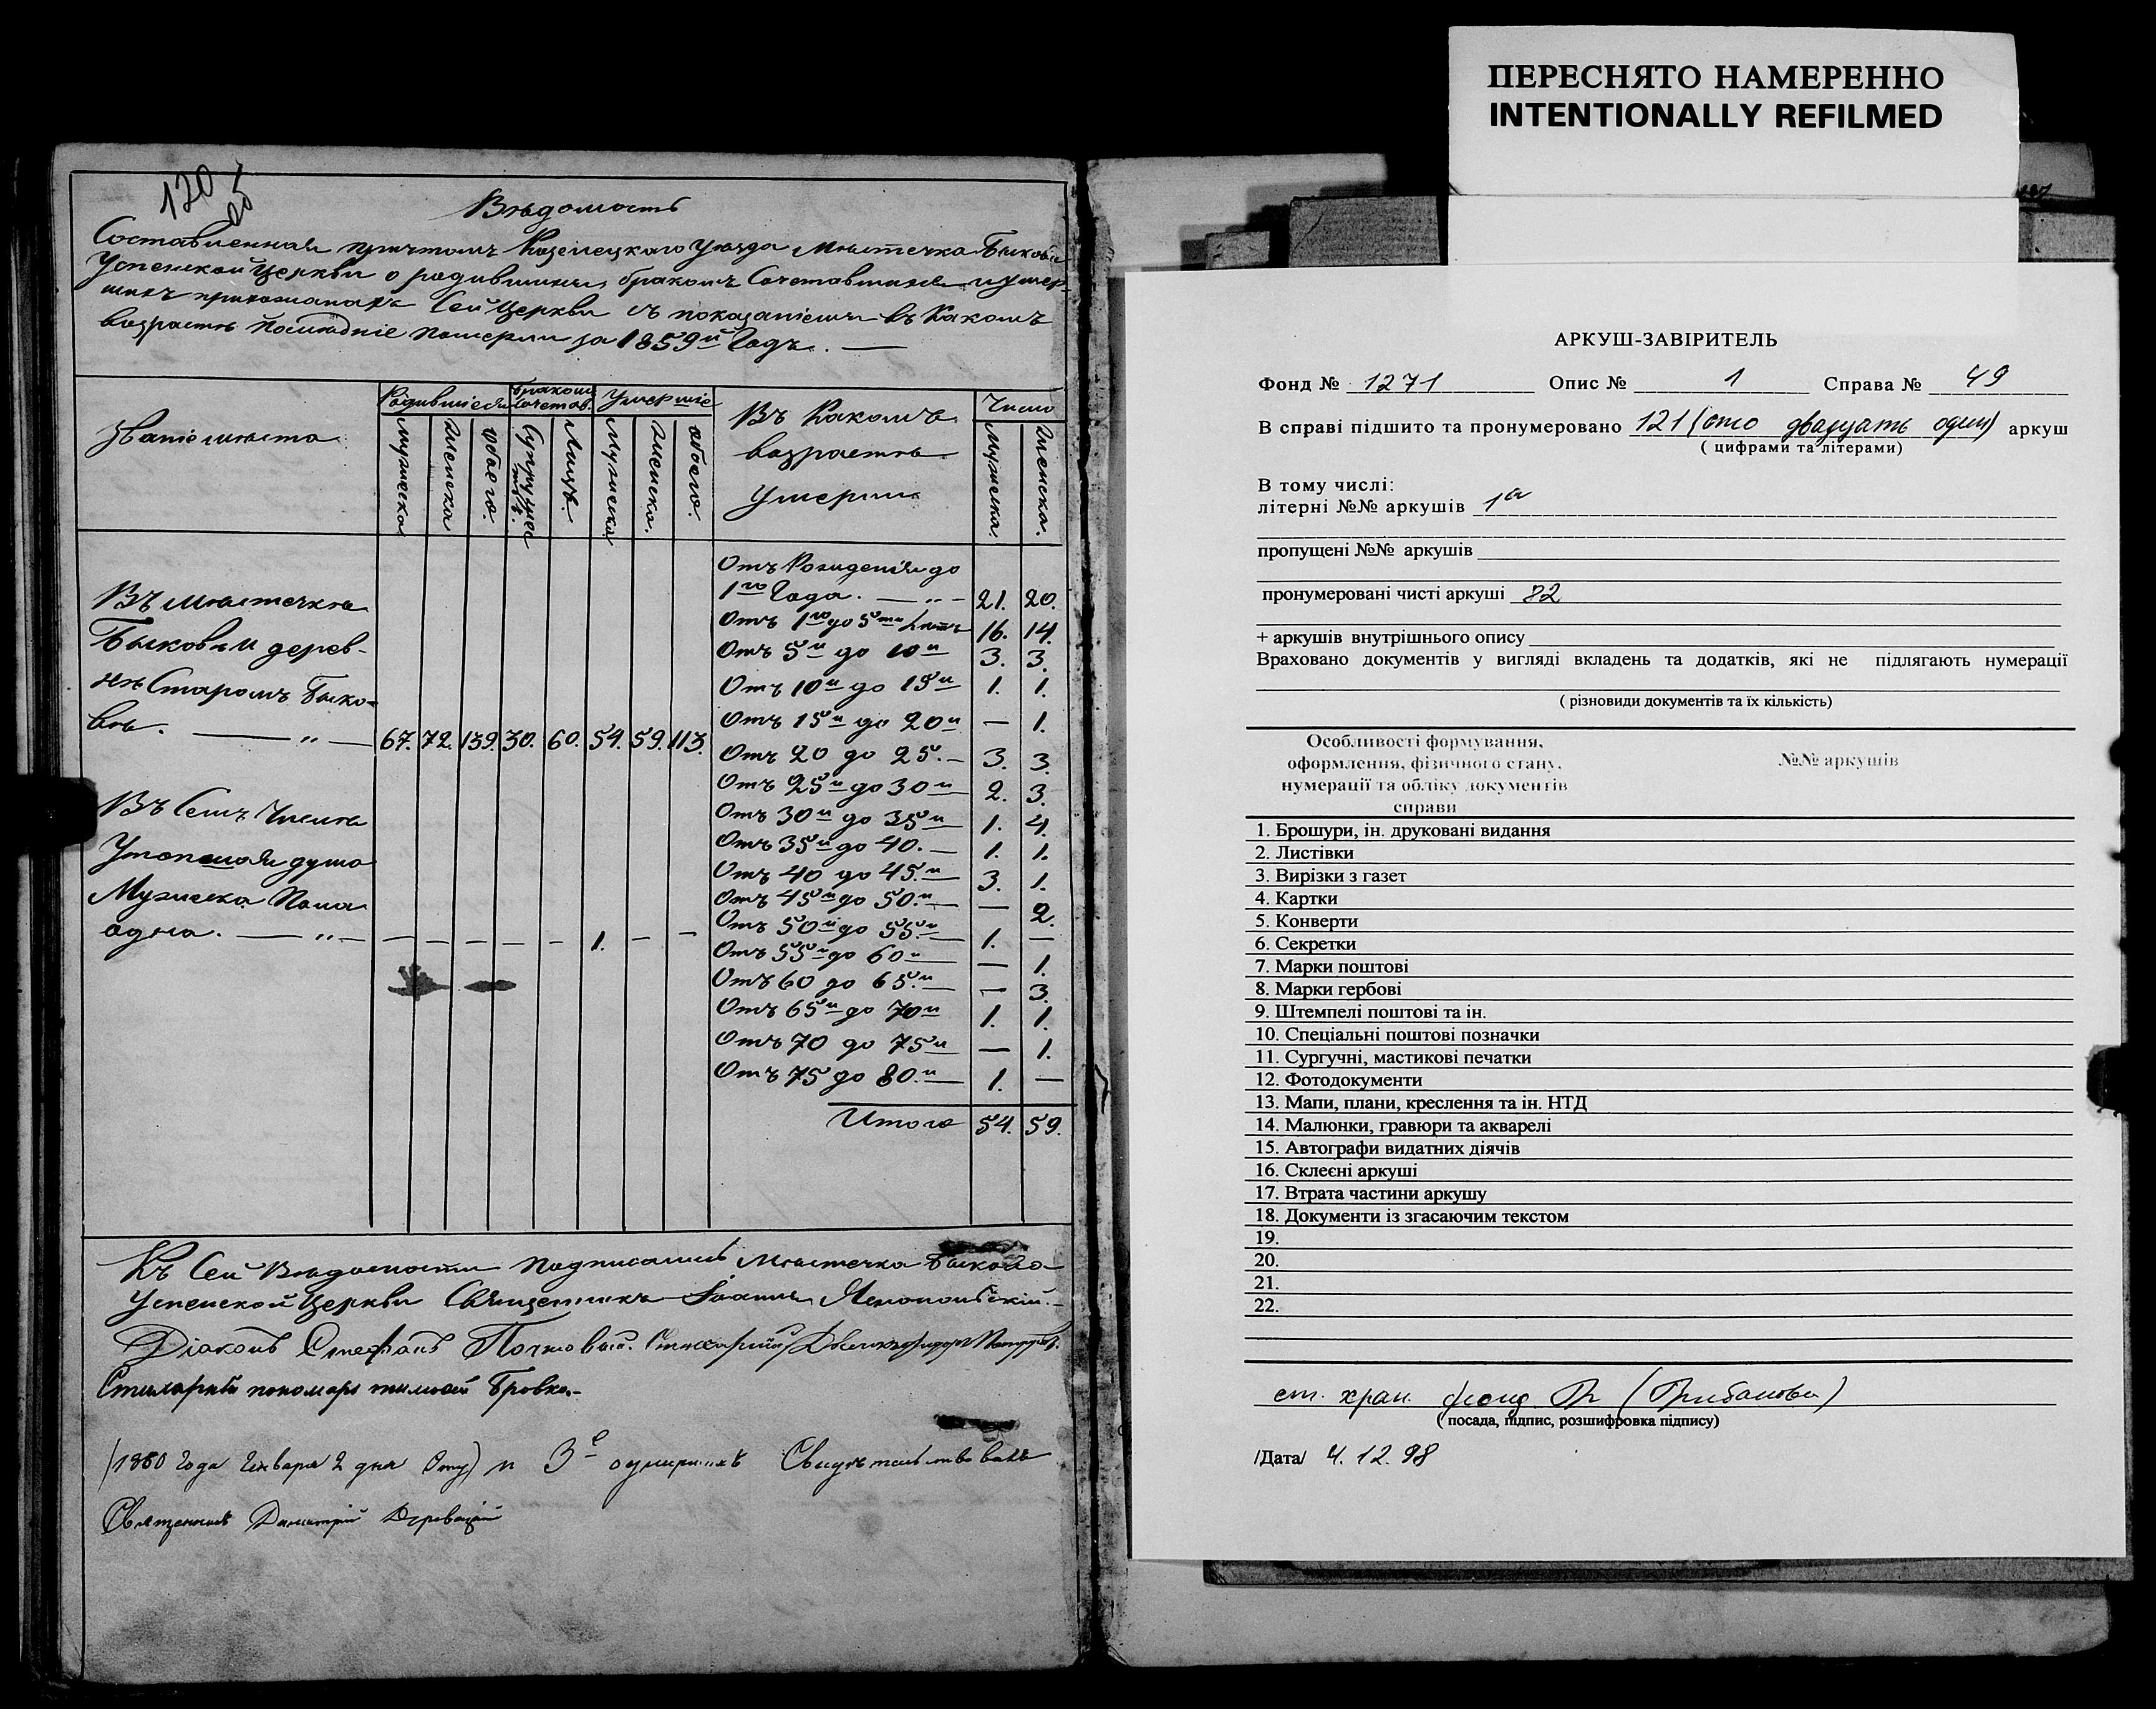 ПЕРЕСНЯТО НАМЕРЕННО
INTENTIONALLY REFILMED
120
Вѣдомость
Составленная причтомъ Козелецкаго уѣзда Мѣстечка Быкова
Успенской Церкви о родившихся, бракомъ Сочетавшихся и умер-
шихъ прихожанахъ Сей Церкви съ показаніемъ въ Какомъ
возрастѣ послѣдніе померли за 1859й Годъ. —
Званіе мѣста
Родившіеся
Бракомъ Сочетав.
Умершіе
Въ Какомъ возрастѣ Умерли
Число
Мужеска
Женска
Обоего.
Супружес
Лицъ.
Мужеска.
Женска.
Обоего.
Мужеска.
Женска.
Въ мѣстечкѣ
Быковѣ и дерев-
нѣ Старомъ Быко-
вѣ. — „ — 67. 72. 139. 30. 60. 54. 59. 113.
Въ Семъ Числѣ
Утопшая душа
Мужеска Пола
одна. — „ — – – – – – 1. – –
Отъ Рожденія до
1го Года. — „ — 21. 20.
Отъ 1го до 5ти лѣтъ 16. 14.
Отъ 5и до 10и 3. 3.
Отъ 10и до 15и 1. 1.
Отъ 15и до 20и — 1.
Отъ 20 до 25. — 3. 3.
Отъ 25и до 30и 2. 3.
Отъ 30и до 35и 1. 4.
Отъ 35и до 40. — 1. 1.
Отъ 40 до 45.и 3. 1.
Отъ 45и до 50.и — 2.
Отъ 50и до 55.и 1. —
Отъ 55и до 60и — 1.
Отъ 60 до 65.и — 3.
Отъ 65и до 70и 1. 1.
Отъ 70 до 75и — 1.
Отъ 75 до 80.и 1. —
Итого 54. 59.
Къ Сей Вѣдомости подписались Мѣстечка Быкова
Успенской Церкви Священникъ Іоаннъ
Діаконъ Стефанъ
пономарь Бровко.
1860 Года Января 2 дня 3е Свидѣтельствовалъ
Священникъ Димитрій
АРКУШ-ЗАВІРИТЕЛЬ
Фонд № 1271 Опис № 1 Справа № 49
В справі підшито та пронумеровано 121 (сто двадцать один) аркуш
( цифрами та літерами)
В тому числі:
літерні №№ аркушів 1а
пропущені №№ аркушів
пронумеровані чисті аркуші 82
+ аркушів внутрішнього опису
Враховано документів у вигляді вкладень та додатків, які не підлягають нумерації
( різновиди документів та їх кількість)
Особливості формування,
оформлення, фізичного стану,
нумерації та обліку документів
справи
№№ аркушів
1. Брошури, ін. друковані видання
2. Листівки
3. Вирізки з газет
4. Картки
5. Конверти
6. Секретки
7. Марки поштові
8. Марки гербові
9. Штемпелі поштові та ін.
10. Спеціальні поштові позначки
11. Сургучні, мастикові печатки
12. Фотодокументи
13. Мапи, плани, креслення та ін. НТД
14. Малюнки, гравюри та акварелі
15. Автографи видатних діячів
16. Склеєні аркуші
17. Втрата частини аркушу
18. Документи із згасаючим текстом
19.
20.
21.
22.
ст. хран. фонд
( посада, підпис, розшифровка підпису)
/Дата/ 4.12.98